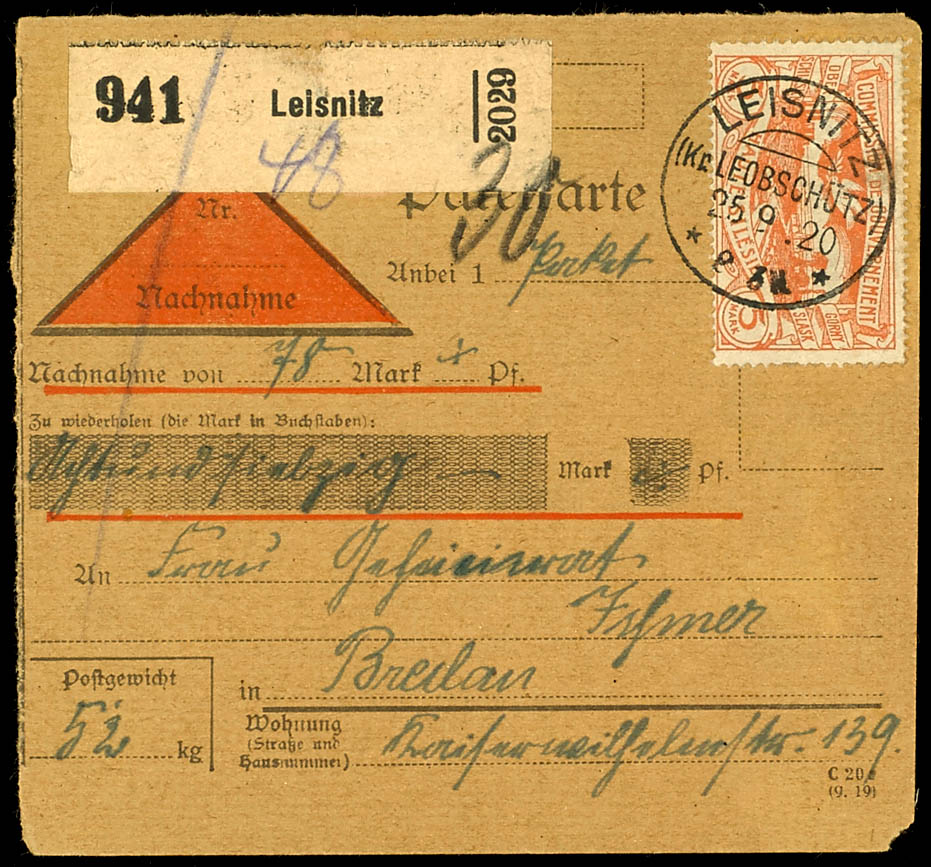 941 Leisnitz 2029
48
30
Paketkarte
Nr.
Nachnahme
Anbei 1 Paket
Nachnahme von 78 Mark Pf.
Zu wiederholen (die Mark in Buchstaben):
Achtundsiebzig — Mark Pf.
An Frau Geheimrat
Ischmer
in Breslau
Postgewicht
5½ kg
Wohnung
(Straße und
Hausnummer)
Kaiserwilhelmstr. 139.
C 20
(9. 19)
LEISNITZ
(Kr. LEOBSCHÜTZ)
25 9.20
COMMISSION DE GOUVERNEMENT
HAUTE SILESIE
GORNY
ŚLĄSK
5
MARK